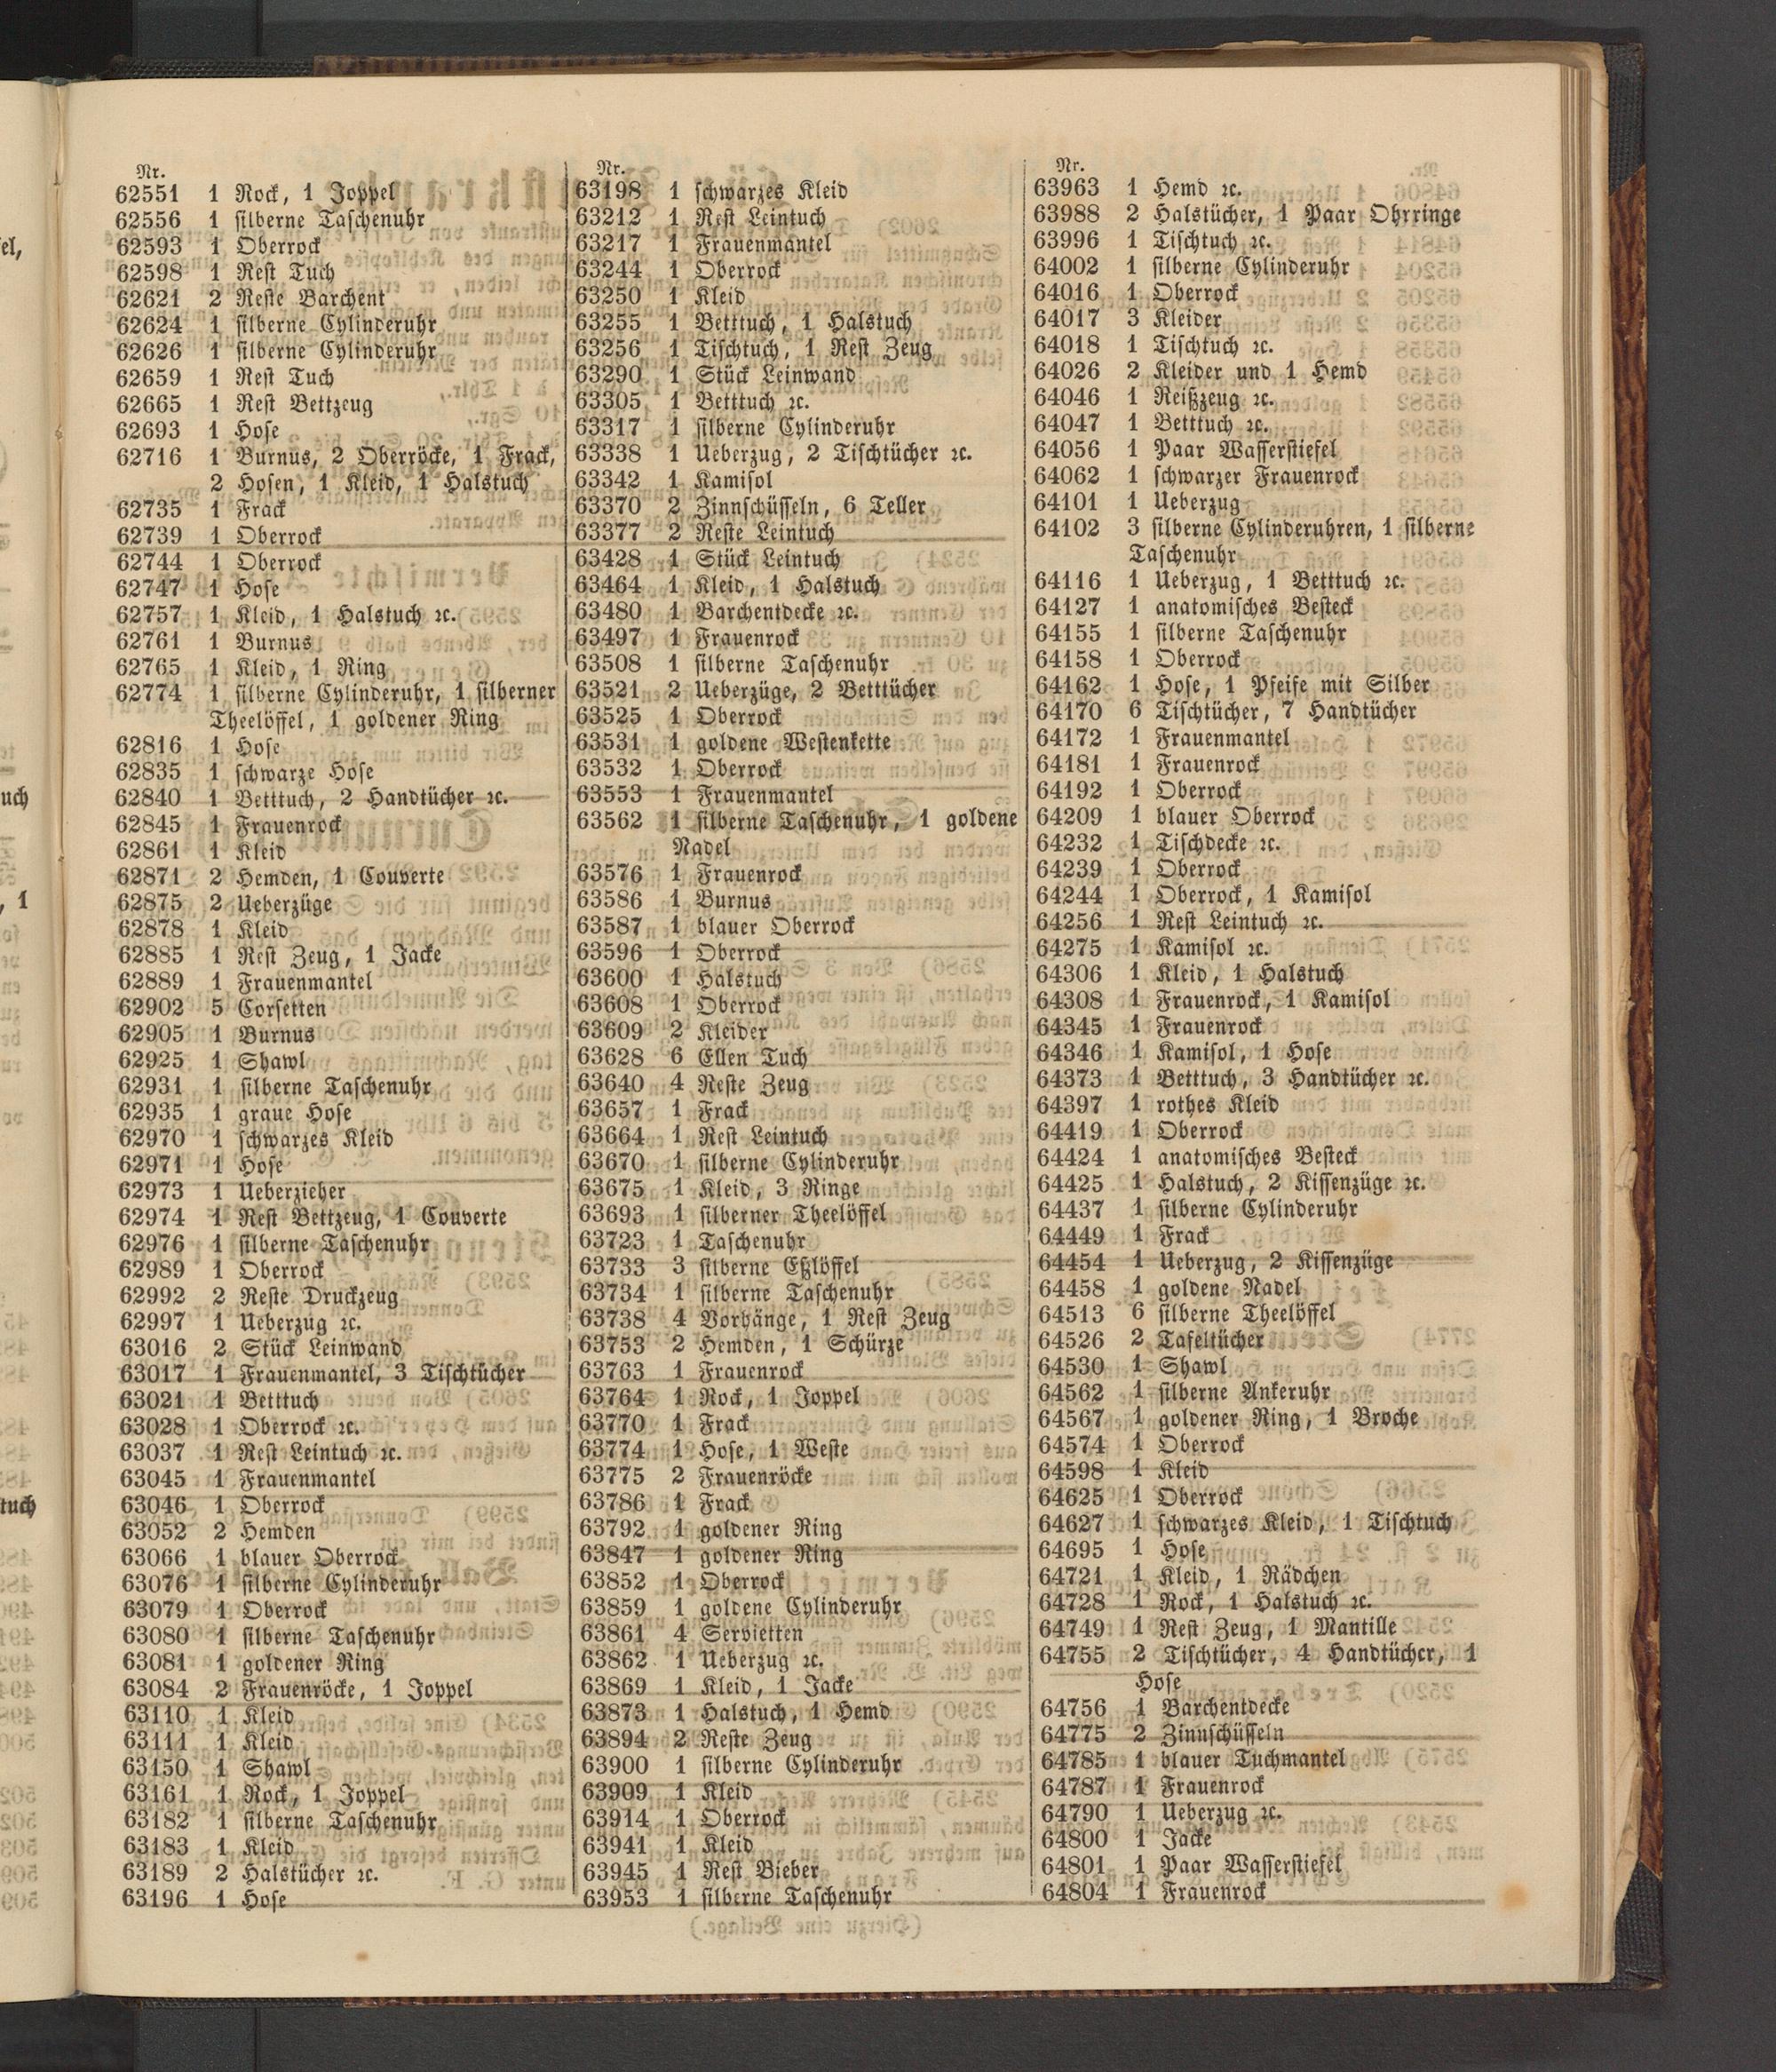 Nr.
62551 1 Rock, 1 Joppel
62556 1 silberne Taschenuhr
62593 1 Oberrock
62598 1 Rest Tuch
62621 2 Reste Barchent
62624 1 silberne Cylinderuhr
62626 1 silberne Cylinderuhr
62659 1 Rest Tuch
62665 1 Rest Bettzeug
62693 1 Hose
62716 1 Burnus, 2 Oberröcke, 1 Frack,
2 Hosen, 1 Kleid, 1 Halstuch
62735 1 Frack
62739 1 Oberrock
62744 1 Oberrock
62747 1 Hose
62757 1 Kleid, 1 Halstuch ꝛc.
62761 1 Burnus
62765 1 Kleid, 1 Ring
62774 1 silberne Cylinderuhr, 1 silberner
Theelöffel, 1 goldener Ring
62816 1 Hose
62835 1 schwarze Hose
62840 1 Betttuch, 2 Handtücher ꝛc.
62845 1 Frauenrock
62861 1 Kleid
62871 2 Hemden, 1 Couverte
62875 2 Ueberzüge
62878 1 Kleid
62885 1 Rest Zeug, 1 Jacke
62889 1 Frauenmantel
62902 5 Corsetten
62905 1 Burnus
62925 1 Shawl
62931 1 silberne Taschenuhr
62935 1 graue Hose
62970 1 schwarzes Kleid
62971 1 Hose
62973 1 Ueberzieher
62974 1 Rest Bettzeug, 1 Couverte
62976 1 silberne Taschenuhr
62989 1 Oberrock
62992 2 Reste Druckzeug
62997 1 Ueberzug ꝛc.
63016 2 Stück Leinwand
63017 1 Frauenmantel, 3 Tischtücher
63021 1 Betttuch
63028 1 Oberrock ꝛc.
63037 1 Rest Leintuch ꝛc.
63045 1 Frauenmantel
63046 1 Oberrock
63052 2 Hemden
63066 1 blauer Oberrock
63076 1 silberne Cylinderuhr
63079 1 Oberrock
63080 1 silberne Taschenuhr
63081 1 goldener Ring
63084 2 Frauenröcke, 1 Joppel
63110 1 Kleid
63111 1 Kleid
63150 1 Shawl
63161 1 Rock, 1 Joppel
63182 1 silberne Taschenuhr
63183 1 Kleid
63189 2 Halstücher ꝛc.
63196 1 Hose
Nr.
63198 1 schwarzes Kleid
63212 1 Rest Leintuch
63217 1 Frauenmantel
63244 1 Oberrock
63250 1 Kleid
63255 1 Betttuch, 1 Halstuch
63256 1 Tischtuch, 1 Rest Zeug
63290 1 Stück Leinwand
63305 1 Betttuch ꝛc.
63317 1 silberne Cylinderuhr
63338 1 Ueberzug, 2 Tischtücher ꝛc.
63342 1 Kamisol
63370 2 Zinnschüsseln, 6 Teller
63377 2 Reste Leintuch
63428 1 Stück Leintuch
63464 1 Kleid, 1 Halstuch
63480 1 Barchentdecke ꝛc.
63497 1 Frauenrock
63508 1 silberne Taschenuhr
63521 2 Ueberzüge, 2 Betttücher
63525 1 Oberrock
63531 1 goldene Westenkette
63532 1 Oberrock
63553 1 Frauenmantel
63562 1 silberne Taschenuhr, 1 goldene
Nadel
63576 1 Frauenrock
63586 1 Burnus
63587 1 blauer Oberrock
63596 1 Oberrock
63600 1 Halstuch
63608 1 Oberrock
63609 2 Kleider
63628 6 Ellen Tuch
63640 4 Reste Zeug
63657 1 Frack
63664 1 Rest Leintuch
63670 1 silberne Cylinderuhr
63675 1 Kleid, 3 Ringe
63693 1 silberner Theelöffel
63723 1 Taschenuhr
63733 3 silberne Eßlöffel
63734 1 silberne Taschenuhr
63738 4 Vorhänge, 1 Rest Zeug
63753 2 Hemden, 1 Schürze
63763 1 Frauenrock
63764 1 Rock, 1 Joppel
63770 1 Frack
63774 1 Hose, 1 Weste
63775 2 Frauenröcke
63786 1 Frack
63792 1 goldener Ring
63847 1 goldener Ring
63852 1 Oberrock
63859 1 goldene Cylinderuhr
63861 4 Servietten
63862 1 Ueberzug ꝛc.
63869 1 Kleid, 1 Jacke
63873 1 Halstuch, 1 Hemd
63894 2 Reste Zeug
63900 1 silberne Cylinderuhr
63909 1 Kleid
63914 1 Oberrock
63941 1 Kleid
63945 1 Rest Bieber
63953 1 silberne Taschenuhr
Nr.
63963 1 Hemd ꝛc.
63988 2 Halstücher, 1 Paar Ohrringe
63996 1 Tischtuch ꝛc.
64002 1 silberne Cylinderuhr
64016 1 Oberrock
64017 3 Kleider
64018 1 Tischtuch ꝛc.
64026 2 Kleider und 1 Hemd
64046 1 Reißzeug ꝛc.
64047 1 Betttuch ꝛc.
64056 1 Paar Wasserstiefel
64062 1 schwarzer Frauenrock
64101 1 Ueberzug
64102 3 silberne Cylinderuhren, 1 silberne
Taschenuhr
64116 1 Ueberzug, 1 Betttuch ꝛc.
64127 1 anatomisches Besteck
64155 1 silberne Taschenuhr
64158 1 Oberrock
64162 1 Hose, 1 Pfeife mit Silber
64170 6 Tischtücher, 7 Handtücher
64172 1 Frauenmantel
64181 1 Frauenrock
64192 1 Oberrock
64209 1 blauer Oberrock
64232 1 Tischdecke ꝛc.
64239 1 Oberrock
64244 1 Oberrock, 1 Kamisol
64256 1 Rest Leintuch ꝛc.
64275 1 Kamisol ꝛc.
64306 1 Kleid, 1 Halstuch
64308 1 Frauenrock, 1 Kamisol
64345 1 Frauenrock
64346 1 Kamisol, 1 Hose
64373 1 Betttuch, 3 Handtücher ꝛc.
64397 1 rothes Kleid
64419 1 Oberrock
64424 1 anatomisches Besteck
64425 1 Halstuch, 2 Kissenzüge ꝛc.
64437 1 silberne Cylinderuhr
64449 1 Frack
64454 1 Ueberzug, 2 Kissenzüge
64458 1 goldene Nadel
64513 6 silberne Theelöffel
64526 2 Tafeltücher
64530 1 Shawl
64562 1 silberne Ankeruhr
64567 1 goldener Ring, 1 Broche
64574 1 Oberrock
64598 1 Kleid
64625 1 Oberrock
64627 1 schwarzes Kleid, 1 Tischtuch
64695 1 Hose
64721 1 Kleid, 1 Rädchen
64728 1 Rock, 1 Halstuch ꝛc.
64749 1 Rest Zeug, 1 Mantille
64755 2 Tischtücher, 4 Handtücher, 1
Hose
64756 1 Barchentdecke
64775 2 Zinnschüsseln
64785 1 blauer Tuchmantel
64787 1 Frauenrock
64790 1 Ueberzug ꝛc.
64800 1 Jacke
64801 1 Paar Wasserstiefel
64804 1 Frauenrock